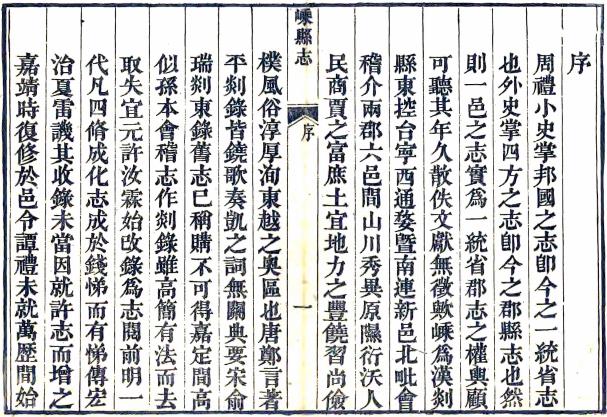 序
周禮小史掌邦國之志卽今之一統省志
也外史掌四方之志卽今之郡縣志也然
則一邑之志實爲一統省郡志之權輿顧
可聽其年久散佚文獻無徵歟嵊爲漢剡
縣東控台寧西通婺暨南連新邑北毗會
稽介兩郡六邑間山川秀異原隰衍沃人
民商賈之富庶土宜地力之豐饒習尚儉
嵊縣志
序
一
樸風俗淳厚洵東越之奧區也唐鄭言著
平剡錄皆鐃歌奏凱之詞無關典要宋俞
瑞剡東錄舊志已稱購不可得嘉定間高
似孫本會稽志作剡錄雖高簡有法而去
取失宜元許汝霖始改錄爲志閱前明一
代凡四脩成化志成於錢悌而有悌傳宏
治夏雷譏其收錄未當因就許志而增之
嘉靖時復修於邑令譚禮未就萬歷間始